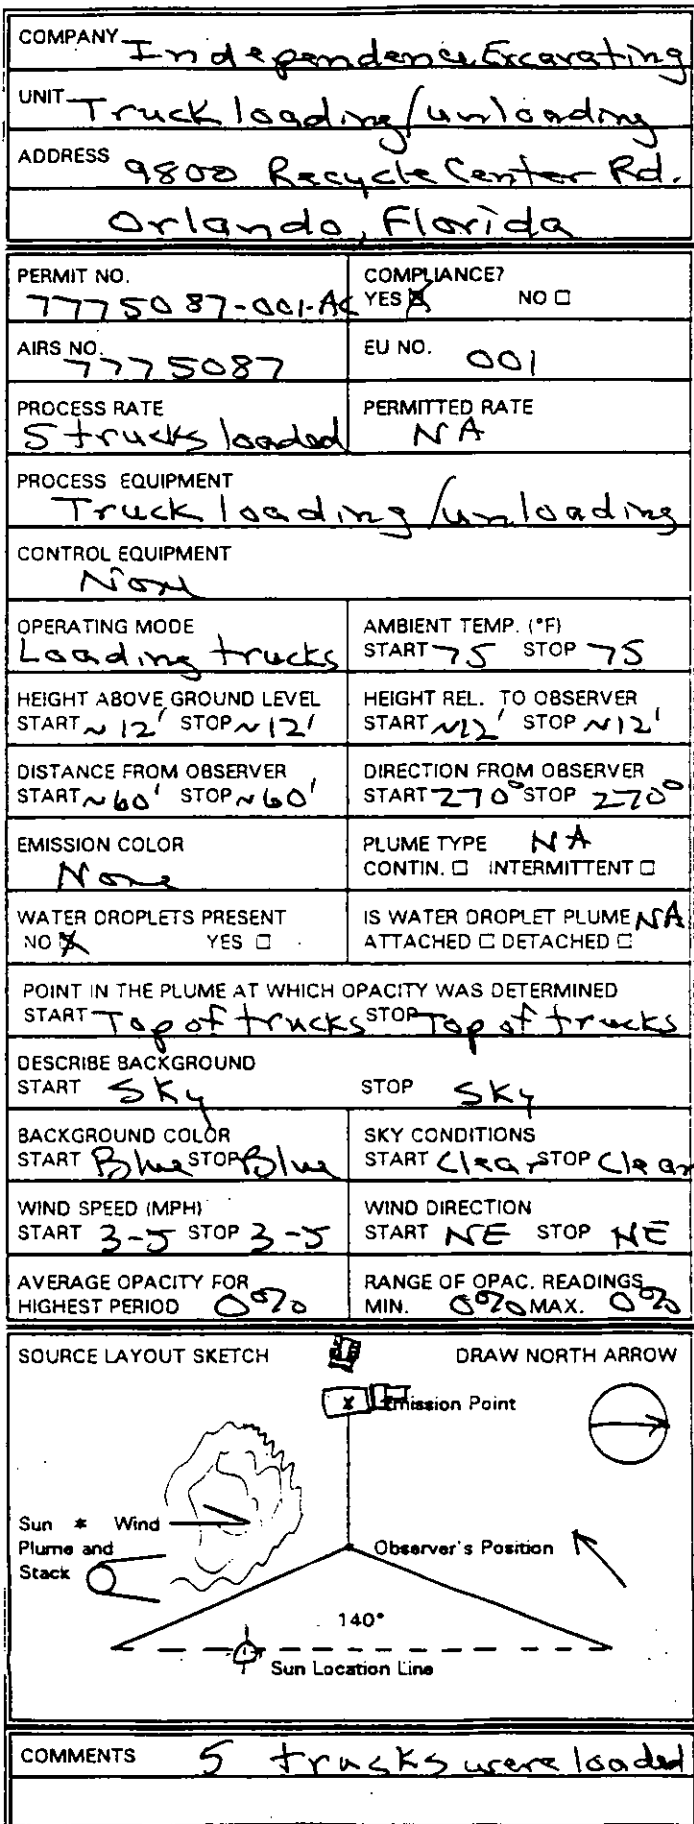 COMPANY Independence Excavating
UNIT Truck loading/unloading
ADDRESS 9800 Recycle Center Rd.
Orlando, Florida
PERMIT NO. 7775087-001-AC
COMPLIANCE? YES ☒ NO ☐
AIRS NO. 7775087
EU NO. 001
PROCESS RATE
5 trucks loaded
PERMITTED RATE
NA
PROCESS EQUIPMENT
Truck loading/unloading
CONTROL EQUIPMENT
None
OPERATING MODE
Loading trucks
AMBIENT TEMP. (°F)
START 75 STOP 75
HEIGHT ABOVE GROUND LEVEL
START ~12' STOP ~12'
HEIGHT REL. TO OBSERVER
START ~12' STOP ~12'
DISTANCE FROM OBSERVER
START ~60' STOP ~60'
DIRECTION FROM OBSERVER
START 270° STOP 270°
EMISSION COLOR
None
PLUME TYPE NA
CONTIN. ☐ INTERMITTENT ☐
WATER DROPLETS PRESENT
NO ☒ YES ☐
IS WATER DROPLET PLUME NA
ATTACHED ☐ DETACHED ☐
POINT IN THE PLUME AT WHICH OPACITY WAS DETERMINED
START Top of trucks STOP Top of trucks
DESCRIBE BACKGROUND
START Sky STOP Sky
BACKGROUND COLOR
START Blue STOP Blue
SKY CONDITIONS
START Clear STOP Clear
WIND SPEED (MPH)
START 3-5 STOP 3-5
WIND DIRECTION
START NE STOP NE
AVERAGE OPACITY FOR
HIGHEST PERIOD 0%
RANGE OF OPAC. READINGS
MIN. 0% MAX. 0%
SOURCE LAYOUT SKETCH DRAW NORTH ARROW
Emission Point
Sun * Wind
Plume and
Stack
Observer's Position
140°
Sun Location Line
COMMENTS 5 trucks were loaded